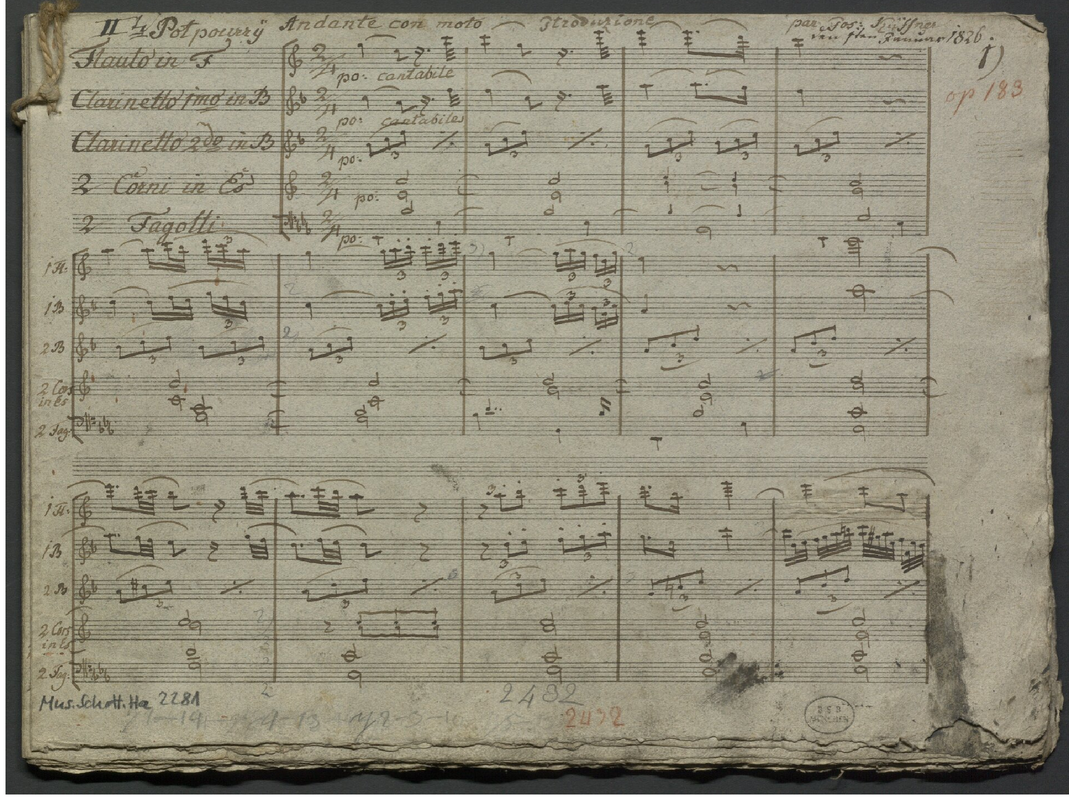 II Potpourrÿ Andante con moto Jtroduzione par Jos: Küffner
den 1ten Januar 1826.
1)
op 183
Flauto in F
po: cantabile
Clarinetto 1mo in B
po: cantabile
Clarinetto 2do in B
po:
2 Corni in Es
po:
2 Fagotti
po:
1 Fl.
1 B
2 B
2 Cors
in Es
2 Fag.
1 Fl.
1 B
2 B
2 Cors
in Es
2 Fag.
Mus.Schott.Ha 2281
2432
2432
BSB
MÜNCHEN